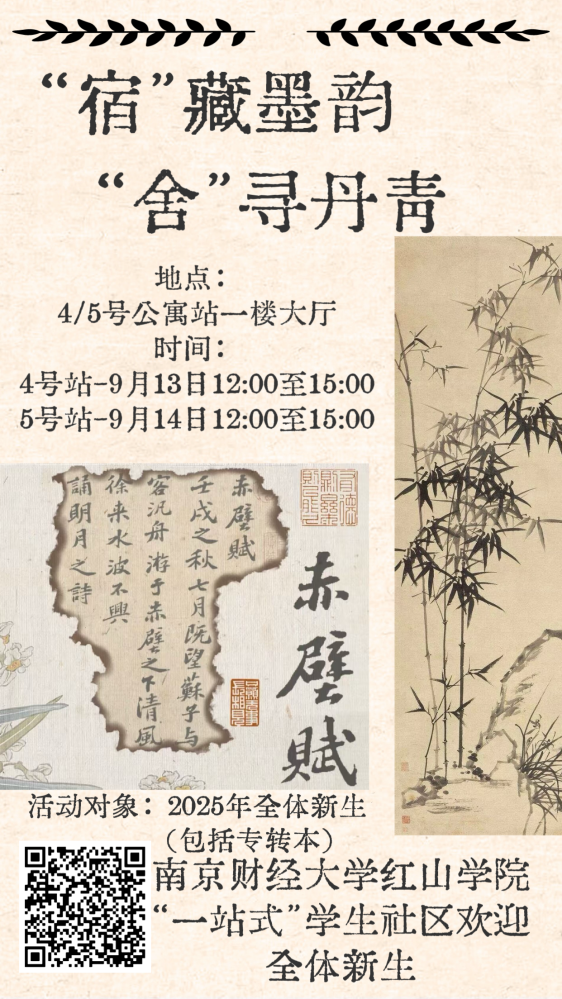 “宿”藏墨韵
“舍”寻丹青
地点：
4/5号公寓站一楼大厅
时间：
4号站-9月13日12:00至15:00
5号站-9月14日12:00至15:00
赤壁賦
壬戌之秋七月既望蘇子与
客汎舟游于赤壁之下清風
徐来水波不興
誦明月之詩
赤壁賦
活动对象：2025年全体新生
（包括专转本）
南京财经大学红山学院
“一站式”学生社区欢迎
全体新生